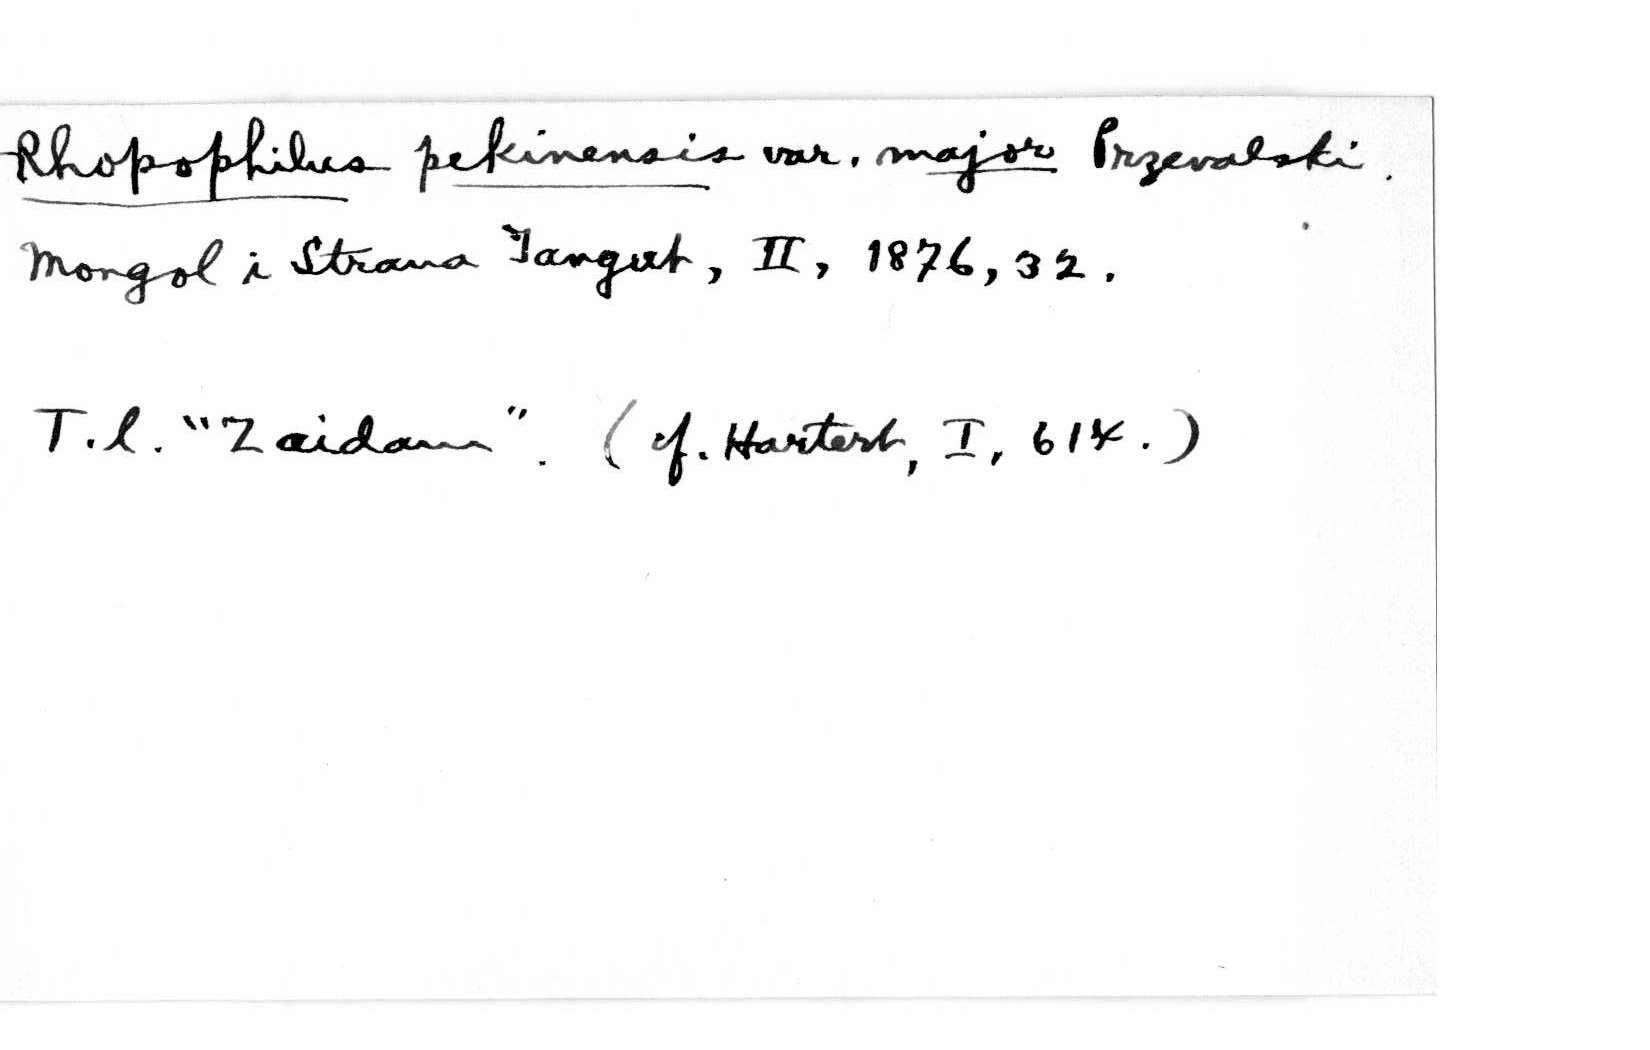 Rhopophilus pekinensis var. major Przevalski.
Mongol i Strana Tangut, II, 1876, 32.
T.l. "Zaidam". (cf. Hartert, I, 614.)